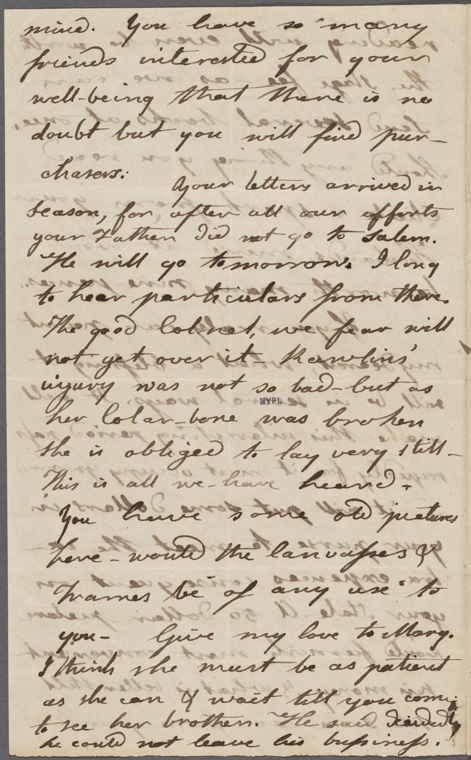 mind. You have so many
friends interested for your
well-being that there is no
doubt but you will find pur-
chasers. Your letters arrived in
season, for after all our efforts
your Father did not go to Salem.
He will go tomorrow. I long
to hear particulars from there.
The good Colonel, we fear will
not get over it. Rawlins'
injury was not so bad - but as
her Colar-bone was broken
NYPL
she is obliged to lay very still -
This is all we have heard.
You have some old pictures
here - would the canvasses &
frames be of any use to
you - Give my love to Mary.
I think she must be as patient
as she can & wait till you come
to see her brother. He said decidedly
he could not leave his bussiness.